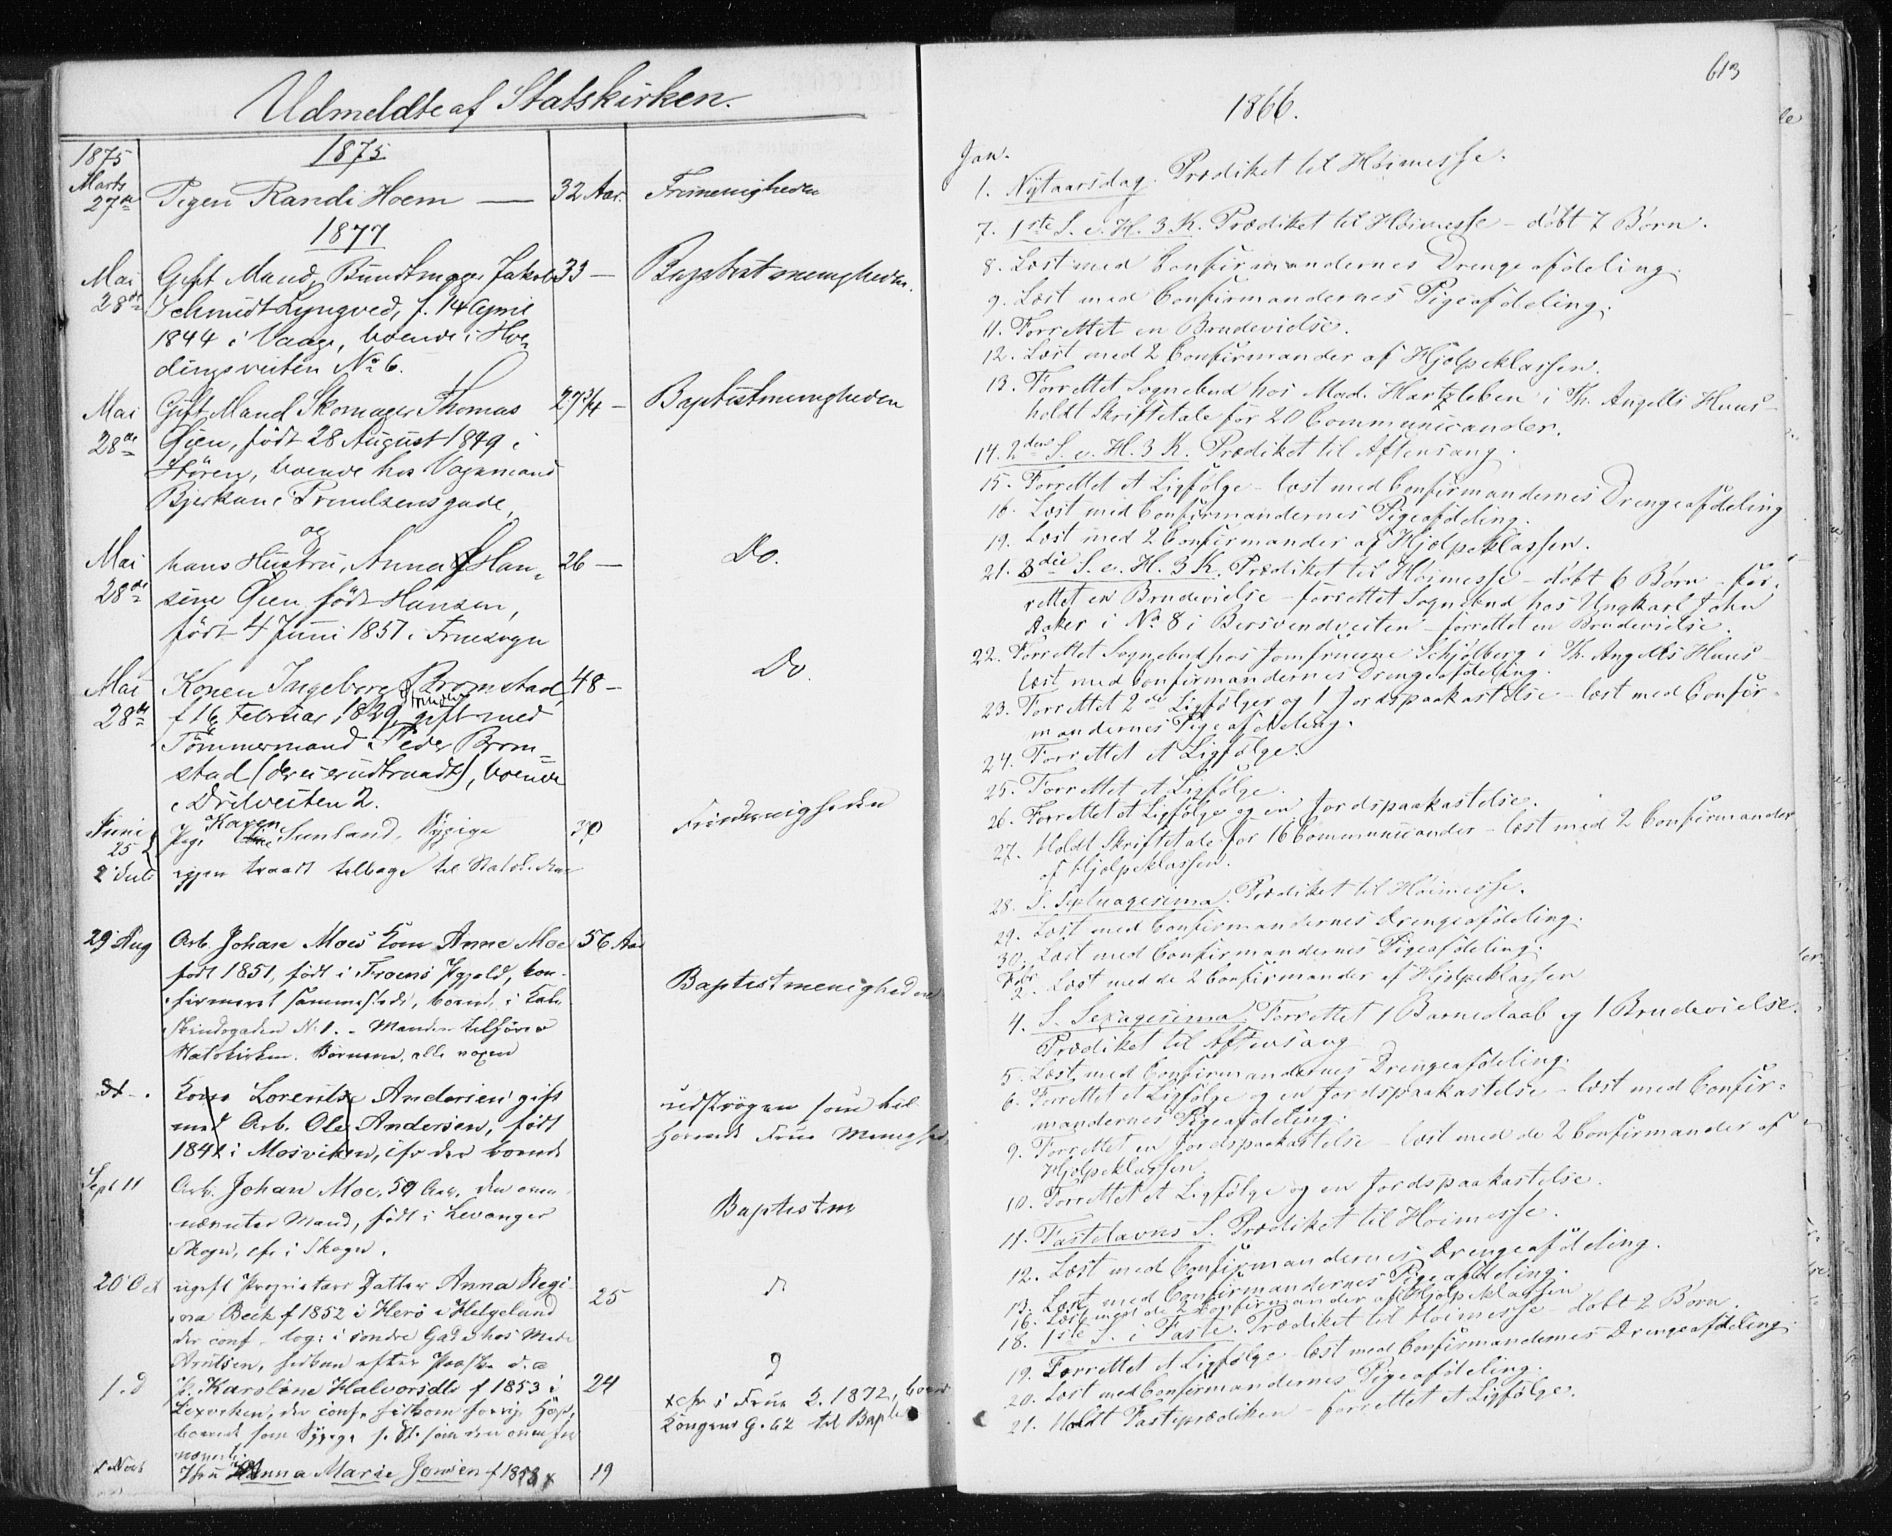 Udmeldte af Statskirken.
1875 1875
Marts 27de Pigen Randi Hoem — 32 Aar. Frimenigheden
1877
Mai Gift Mand Bundtmager Jakob 33 — Baptistmenigheden.
28de Schmidt Lyngved, f. 14 April
1844 i Vaage, boende i Hoe-
dingsveiten No 6.
Mai Gift Mand Skomager Thomas 27 3/4 — Baptistmenigheden
28de Øien, født 28 August 1849 i
Hören, boende hos Vognmand
Bjerkan i Trondsensgade,
og
Mai hans Hustru, Anna Han- 26 — Do.
28de sine Øien født Hansen,
født 4 Juni 1851 i Fruesogn
Mai Konen Ingeborg Bromstad, 48 — Do.
28de f 16 Februar 1829, gift med
Tömmermand Peder Brom-
stad (der ei er udtraadt), boende
i Drilveiten 2.
Juni 25 Pige Karen Sunland, Sypige 30 Frimenigheden
2 Juli igjen traadt tilbage til Statsk.
29 Aug Arb. Johan Moes Kone Anne Moe 56 Aar
født 1851, født i Froens Pgjeld, kon-
firmeret sammesteds, boende i Kalv-
skindsgaden N. 1. - Manden tilhører Baptistmenigheden
Statskirken. Børnene alle voxne
Kone Lorentse Andersen gift udstrøgen som til
med Arb. Ole Andersen, født hørende Frue Menighed
1841 i Mosviken, cfr der boende
Sept 11 Arb. Johan Moe, 59 Aar, den oven-
nævntes Mand, født i Levanger Baptistm
Skogn, cfr i Skogn.
20 Oct ugift Proprietær Datter Anna Regi- 25 d
na Beck f 1852 i Herö i Helgeland
der conf. log: i søndre Gade hos Mad.
Arntsen, hidkom efter Paaske d. a
1. d P. Karoline Halvorsdtr f 1853 i 24 d
Lixviken, der conf. hidkom forrige Høst, xcfr i Frue 2. 1872, boer
boende som Sypige s. St. som den ovenfor Kongens G. 62 til Bapt
nævnte
1 Nov Anna Marie Jonsen f 1858 19
613
1866.
Jan.
1. Nytaarsdag. Prædiket til Høimesse.
7. 1ste S. e. H. 3 K. Prædiket til Høimesse - døbt 7 Børn.
8. Læst med Confirmandernes Drengeafdeling.
9. Læst med Confirmandernes Pigeafdeling.
11. Forrettet en Brudevielse.
12. Læst med 2 Confirmander af Hjælpeklassen.
13. Forrettet Sognebud hos Mad. Hartzleben i Th. Angells Huus -
holdt Skriftetale for 20 Communicander.
14. 2den S. e. H. 3 K. Prædiket til Aftensang.
15. Forrettet et Ligfølge - læst med Confirmandernes Drengeafdeling
16. Læst med Confirmandernes Pigeafdeling.
19. Læst med 2 Confirmander af Hjælpeklassen.
21. 3die S. e. H. 3 K. Prædiket til Høimesse - døbt 6 Børn - for-
rettet en Brudevielse - forrettet Sognebud hos Ungkarl John
Aaker i No 8 i Bersvendveiten - forrettet en Brudevielse.
22. Forrettet Sognebud hos Jomfruerne Schjølberg i Th. Angells Huus -
læst med Confirmandernes Drengeafdeling.
23. Forrettet 2de Ligfølger og 1 Jordspaakastelse - læst med Confir-
mandernes Pigeafdeling.
24. Forrettet et Ligfølge.
25. Forrettet et Ligfølge.
26. Forrettet et Ligfølge og en Jordspaakastelse.
27. Holdt Skriftetale for 16 Communicander - læst med 2 Confirmander
af Hjælpeklassen.
28. S. Septuagesima. Prædiket til Høimesse.
29. Læst med Confirmandernes Drengeafdeling.
30. Læst med Confirmandernes Pigeafdeling.
Febr
2. Læst med de 2 Confirmander af Hjælpeklassen
4. S. Sexagesima. Forrettet 1 Barnedaab og 1 Brudevielse.
Prædiket til Aftensang
5. Læst med Confirmandernes Drengeafdeling.
6. Forrettet et Ligfølge og en Jordspaakastelse - læst med Confir-
mandernes Pigeafdeling.
9. Forrettet en Jordspaakastelse - læst med de 2 Confirmander af
Hjælpeklassen.
10. Forrettet et Ligfølge og en Jordspaakastelse.
11. Fastelavns S. Prædiket til Høimesse.
12. Læst med Confirmandernes Drengeafdeling.
13. Læst med Confirmandernes Pigeafdeling.
16. Læst med de 2 Confirmander af Hjælpeklassen
18. 1ste S. i Faste. Prædiket til Høimesse - døbt 2 Børn.
19. Forrettet et Ligfølge - læst med Confirmandernes Drengeafdeling.
20. Læst med Confirmandernes Pigeafdeling.
21. Holdt Fasteprædiken - forrettet et Ligfølge.